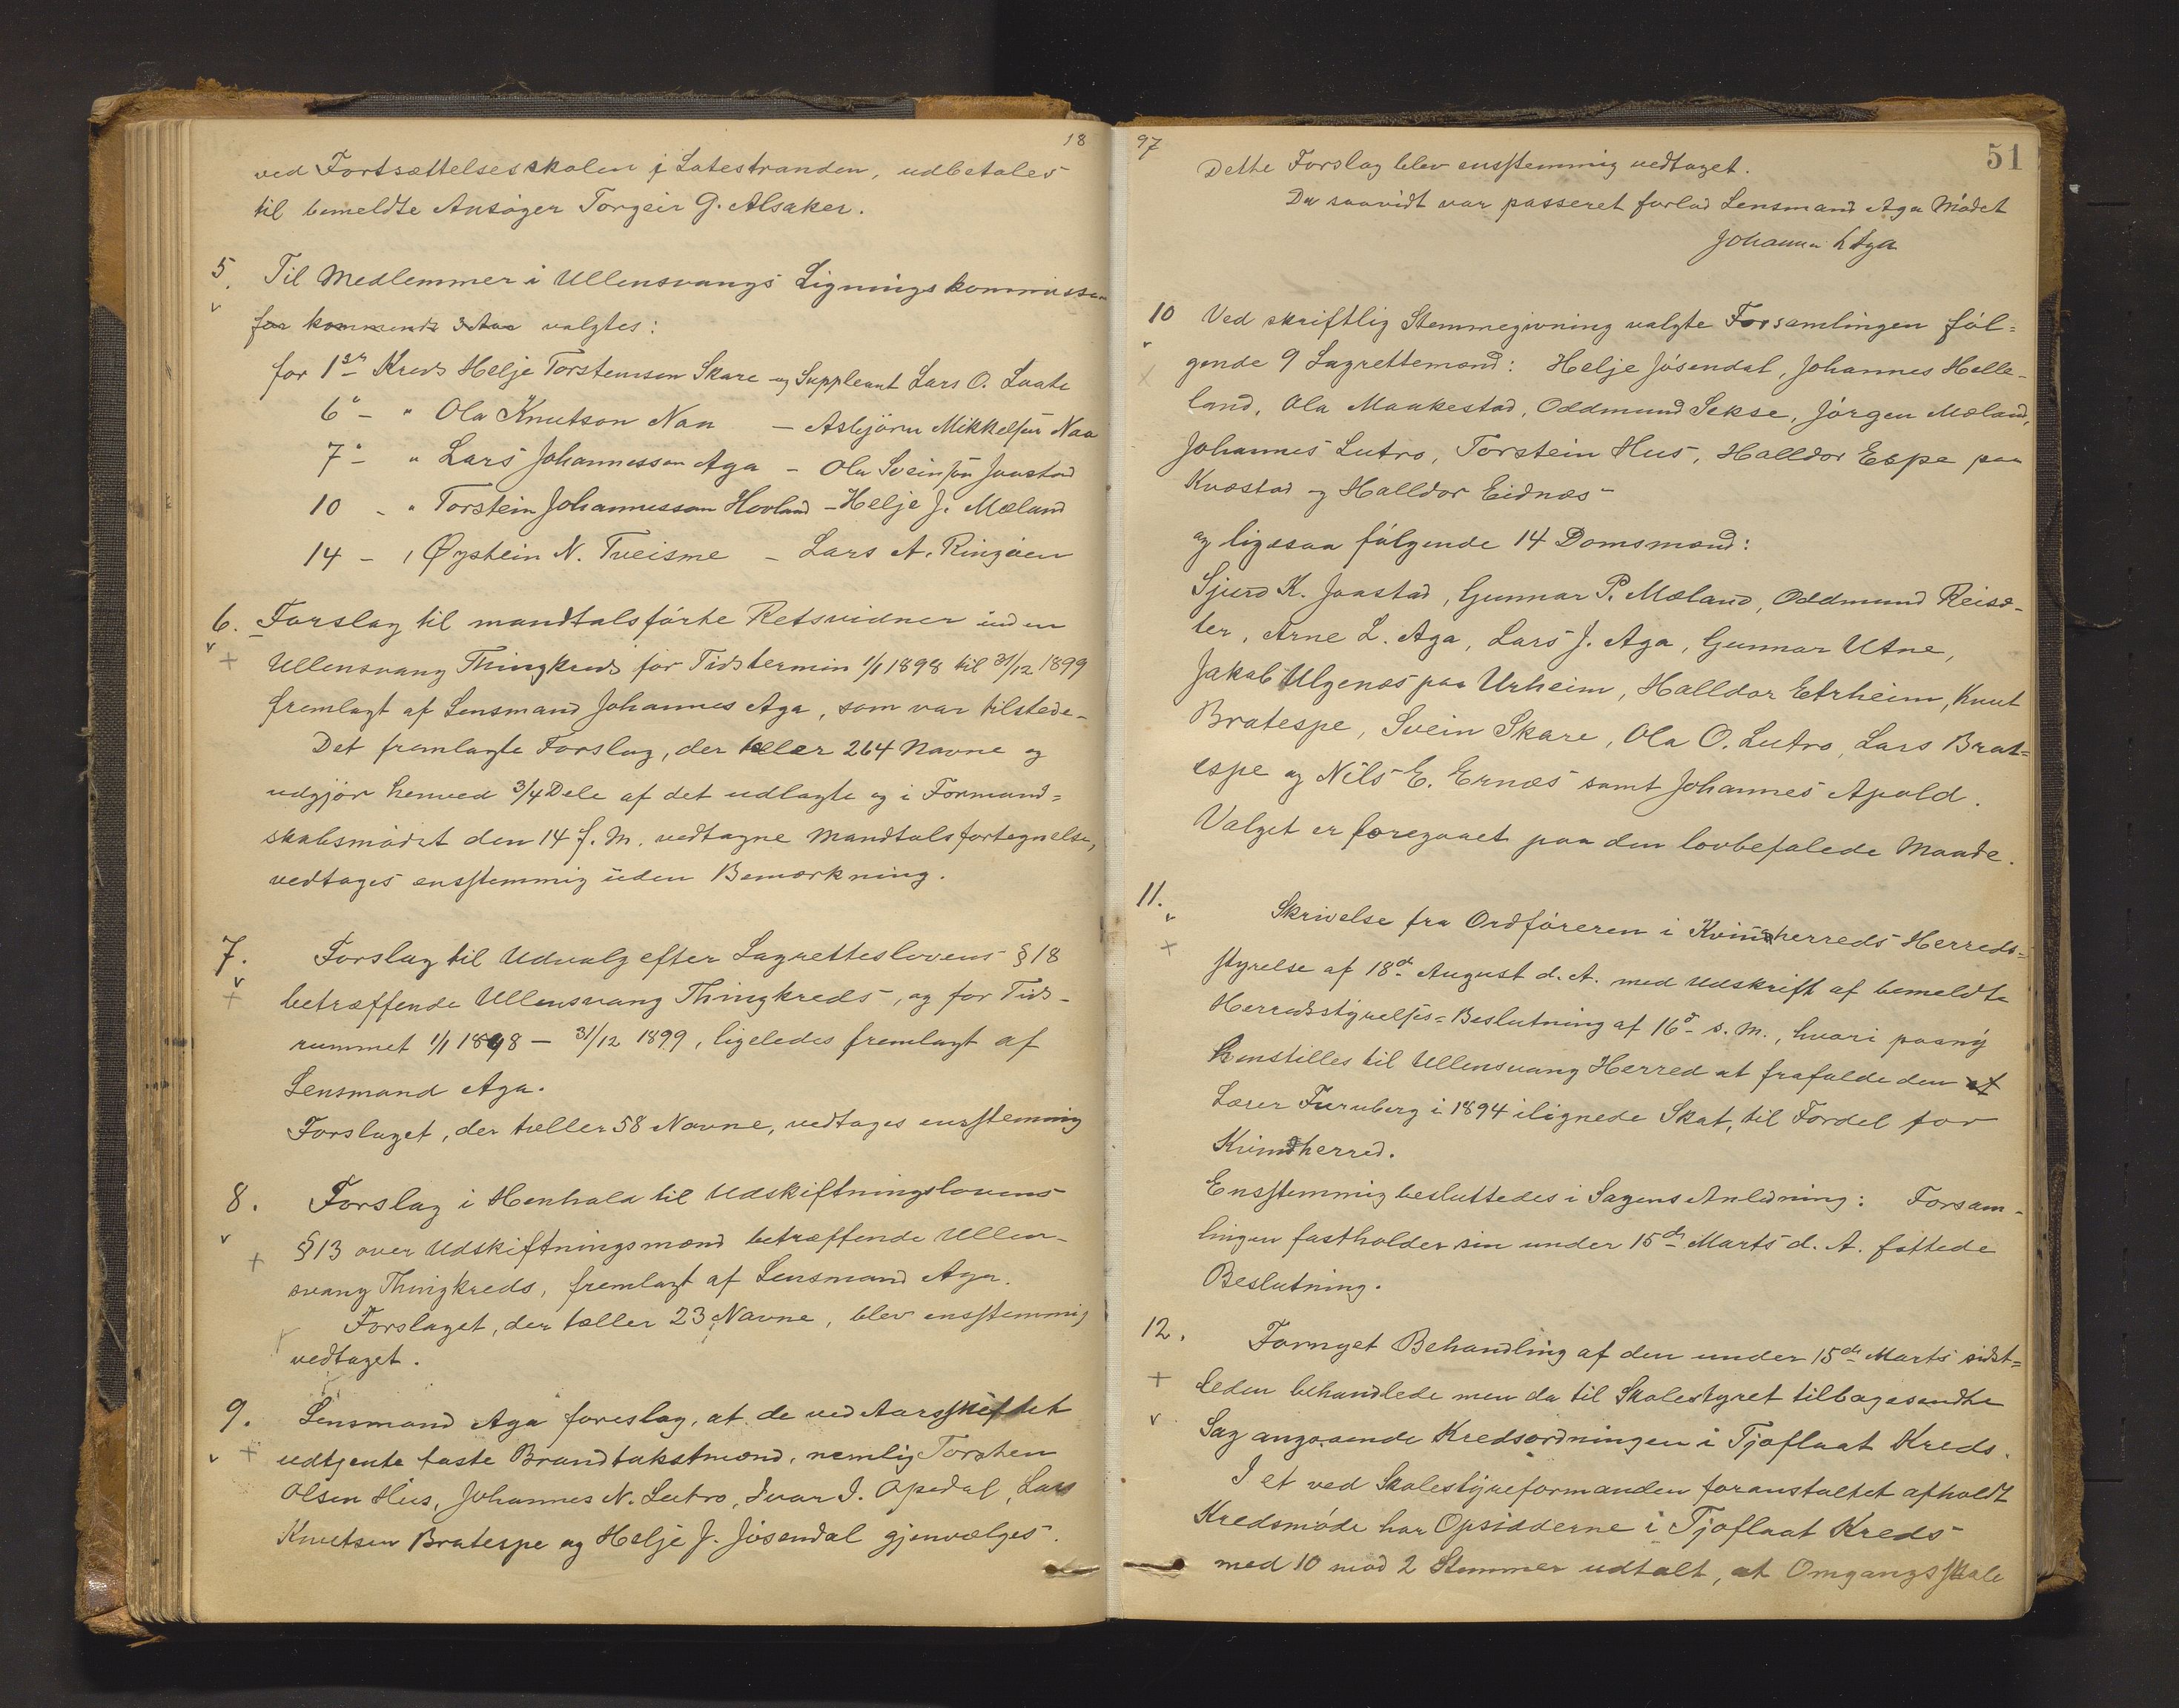 18
ved Fortsættelsesskolen i Latestranden, udbetales
til bemeldte Ansøger Torgeir G. Alsaker.
5. Til Medlemmer i Ullensvangs Ligningskommission
v
for kommende 3 Aar valgtes:
for 1ste Kreds Helje Torsteinson Skare og Suppleant Lars O. Laate
6te - " Ola Knutson Naa - Asbjörn Mikkelsen Naa
7de - " Lars Johannesson Aga - Ola Sveinsön Jaastad
10 - " Torstein Johannesson Hovland - Helje J. Mæland
14 - " Øystein N. Tveisme - Lars A. Ringöen
6. Forslag til mandtalsførte Retsvidner inden
v +
Ullensvang Thingkreds for Tidstermin 1/1 1898 til 31/12 1899
fremlagt af Lensmand Johannes Aga, som var tilstede.
Det fremlagte Forslag, der tæller 264 Navne og
udgjør henved 3/4 Dele af det udlagte og i Formand=
skabsmødet den 14 f. M. vedtagne Mandtalsfortegnelse,
vedtages ensstemmig uden Bemærkning.
7. Forslag til Udvalg efter Lagretteslovens § 18
v +
betræffende Ullensvang Thingkreds, og for Tids-
rummet 1/1 1898 - 31/12 1899, ligeledes fremlagt af
Lensmand Aga.
Forslaget, der tæller 58 Navne, vedtages ensstemmig
8. Forslag i Henhold til Udskiftningslovens
v +
§ 13 over Udskiftningsmænd betræffende Ullen-
svang Thingkreds, fremlagt af Lensmand Aga.
Forslaget, der tæller 23 Navne, blev ensstemmig
vedtaget.
9. Lensmand Aga foreslog, at de ved Aarsskiftet
v +
udtjente faste Brandtakstmænd, nemlig Torsten
Olsen Hus, Johannes N. Lutro, Ivar I. Opedal, Lars
Knutsen Bratespe og Helje J. Jösendal gjenvælges.
97
51
Dette Forslag blev ensstemmig vedtaget.
Da saavidt var passeret forlod Lensmand Aga Mødet
Johannes L Aga
10 Ved skriftlig Stemmegivning valgte Forsamlingen föl=
v +
gende 9 Lagrettemænd: Helje Jösendal, Johannes Helle-
land, Ola Maakestad, Oddmund Sekse, Jörgen Mæland,
Johannes Lutro, Torstein Hus, Halldor Espe paa
Kvæstad og Halldor Eidnæs
og ligesaa følgende 14 Domsmænd:
Sjurd K. Jaastad, Gunnar P. Mæland, Oddmund Reisæ-
ter, Arne L. Aga, Lars J. Aga, Gunnar Utne,
Jakob Ulgenæs paa Urheim, Halldor Etrheim, Knut
Bratespe, Svein Skare, Ola O. Lutro, Lars Brat=
espe og Nils E. Ernæs samt Johannes Apold.
Valget er foregaaet paa den lovbefalede Maade.
11. Skrivelse fra Ordføreren i Kvindherreds Herreds=
v +
styrelse af 18de August d. A. med Udskrift af bemeldte
Herredsstyrelses=Beslutning af 16de s. M., hvori paany
henstilles til Ullensvang Herred at frafalde den
Lærer Furuberg i 1894 ilignede Skat, til Fordel for
Kvindherred.
Ensstemmig besluttedes i Sagens Anledning: Forsam-
lingen fastholder sin under 15de Marts d. A. fattede
Beslutning.
12. Fornyet Behandling af den under 15de Marts sidst=
+
leden behandlede men da til Skolestyret tilbagesendte
v
Sag angaaende Kredsordningen i Tjoflaat Kreds.
I et ved Skolestyreformanden foranstaltet afholdt
Kredsmøde har Opsidderne i Tjoflaat Kreds
med 10 mod 2 Stemmer udtalt, at Omgangsskole